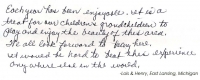 Each year has been enjoyable. It is a
treat for our children & grandchildren to
play and enjoy the beauty of this area.
We all look forward to years here.
It would be hard to beat this experience
any where else in the world.
Lois & Henry, East Lansing, Michigan